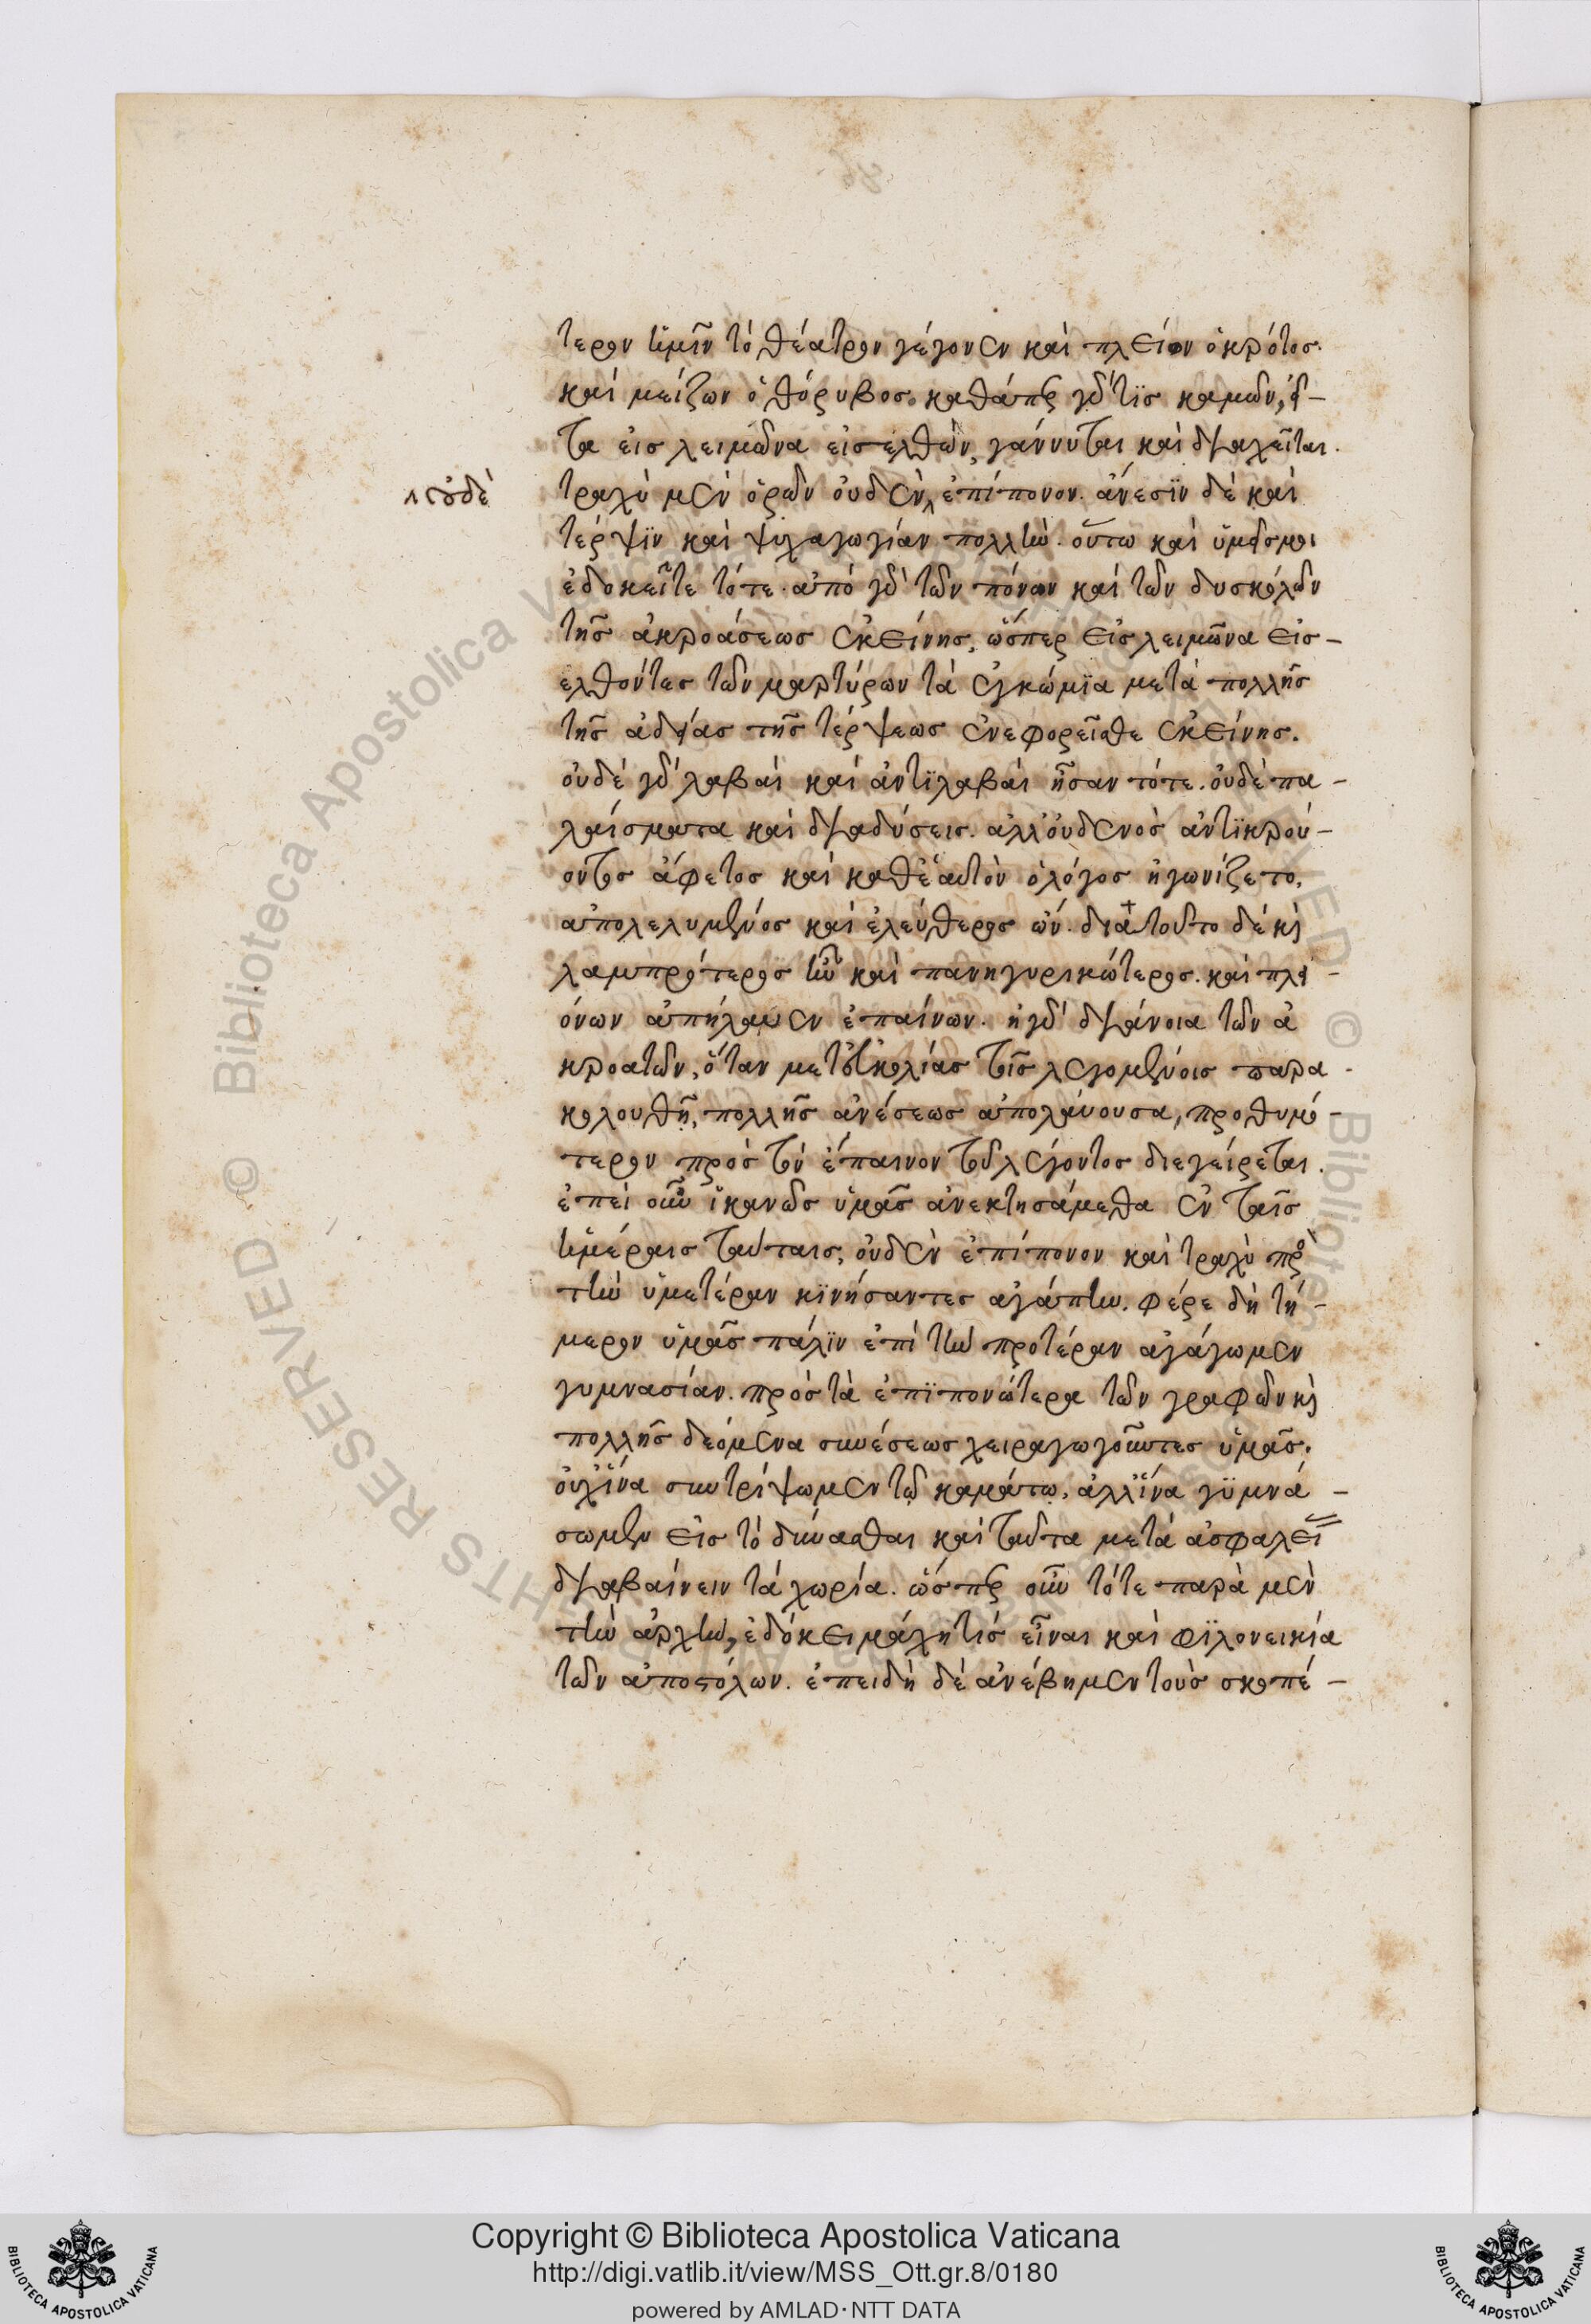 τερον ἡμῖν τὸ θέατρον γέγονεν καὶ πλείων ὁ κρότος.
καὶ μείζων ὁ θόρυβος. καθάπερ γάρ τις καμὼν, εἶ-
τα εἰς λειμῶνα εἰσελθὼν, γάννυται καὶ διαχεῖται.
τραχὺ μὲν ὁρῶν οὐδὲν ἐπίπονον. ἄνεσϊν δὲ καὶ
οὐδὲ
τέρψϊν καὶ ψυχαγωγίαν πολλήν. οὕτω καὶ ὑμεῖς μοι
ἐδοκεῖτε τότε. ἀπὸ γὰρ τῶν πόνων καὶ τῶν δυσκόλων
τῆς ἀκροάσεως ἐκείνης, ὥσπερ εἰς λειμῶνα εἰσ-
ελθόντες τῶν μαρτύρων τὰ ἐγκώμϊα μετὰ πολλῆς
τῆς ἀδείας τῆς τέρψεως ἐνεφορεῖσθε ἐκείνης.
οὐδὲ γὰρ λαβαὶ καὶ ἀντϊλαβαὶ ἦσαν τότε. οὐδὲ πα-
λαίσματα καὶ διαδύσεις. ἀλλ' οὐδενὸς ἀντϊκρού-
οντος ἄφετος καὶ καθ' ἑαυτὸν ὁ λόγος ἠγωνίζετο,
ἀπολελυμένος καὶ ἐλεύθερος ὤν. διὰ τοῦτο δὲ καὶ
λαμπρότερος ἦν καὶ πανηγυρικώτερος. καὶ πλει-
όνων ἀπήλαυεν ἐπαίνων. ἡ γὰρ διάνοια τῶν ἀ
κροατῶν, ὅταν μετ' εὐκολίας τοῖς λεγομένοις παρα-
κολουθῇ, πολλῆς ἀνέσεως ἀπολαύουσα, προθυμό-
τερον πρὸς τὸν ἔπαινον τοῦ λέγοντος διεγείρεται.
ἐπεὶ οὖν ἱκανῶς ὑμᾶς ἀνεκτησάμεθα ἐν ταῖς
ἡμέραις ταύταις, οὐδὲν ἐπίπονον καὶ τραχὺ πρὸς
τὴν ὑμετέραν κϊνήσαντες ἀγάπην. φέρε δὴ τή-
μερον ὑμᾶς πάλϊν ἐπὶ τὴν προτέραν ἀγάγωμεν
γυμνασίαν. πρὸς τὰ ἐπϊπονώτερα τῶν γραφῶν καὶ
πολλῆς δεόμενα συνέσεως χειραγωγοῦντες ὑμᾶς.
οὐχ ἵνα συντρίψωμεν τῷ καμάτῳ, ἀλλ' ἵνα γϋμνά-
σωμεν εἰς τὸ δύνασθαι καὶ ταῦτα μετὰ ἀσφαλεί
διαβαίνειν τὰ χωρία. ὥσπερ οὖν τότε παρὰ μὲν
τὴν ἀρχὴν, ἐδόκει μάχη τὶς εἶναι καὶ φϊλονεικία
τῶν ἀποστόλων. ἐπειδὴ δὲ ἀνέβημεν τοὺς σκοπέ-
Copyright © Biblioteca Apostolica Vaticana
http://digi.vatlib.it/view/MSS_Ott.gr.8/0180
powered by AMLAD·NTT DATA
BIBLIOTECA APOSTOLICA VATICANA
BIBLIOTECA APOSTOLICA VATICANA